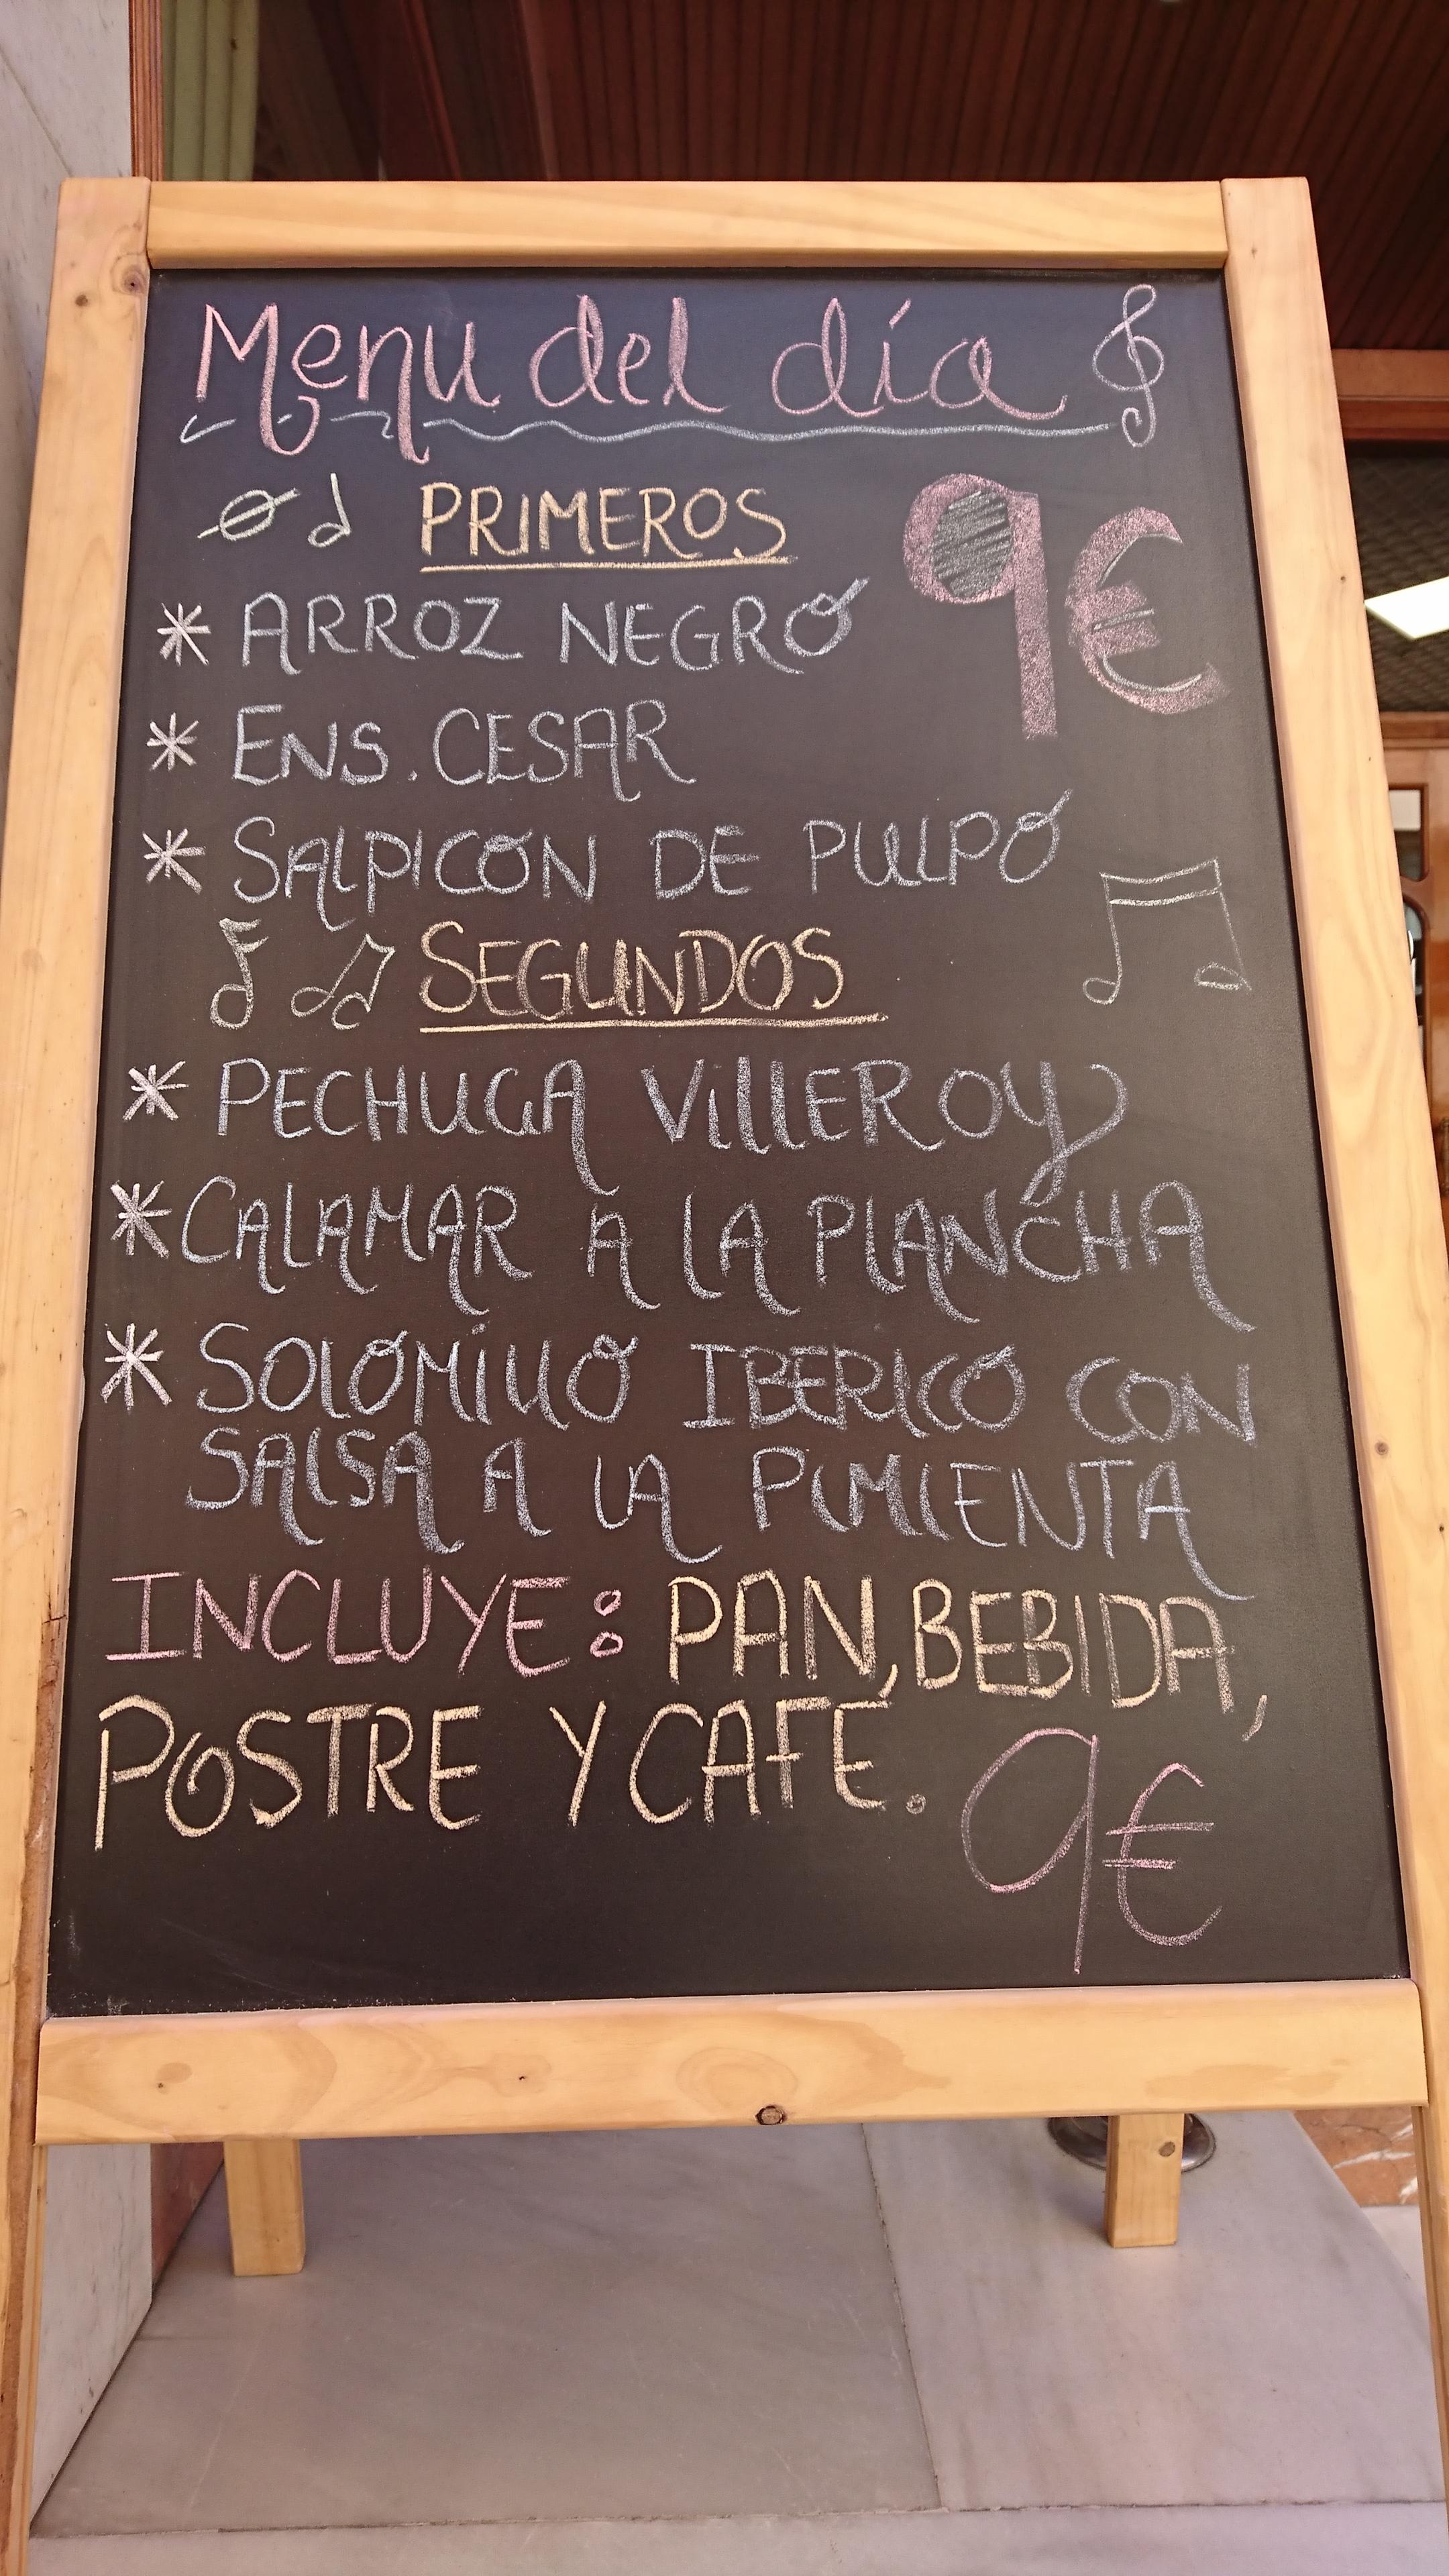 Menu del día
PRIMEROS
9€
* ARROZ NEGRO
* ENS. CESAR
* SALPICON DE PULPO
SEGUNDOS
* PECHUGA VillEROY
* CALAMAR A LA PLANCHA
* SOLOMiLLO IBERICO CON
SALSA A LA PIMIENTA
INCLUYE: PAN, BEBIDA,
POSTRE Y CAFÉ.
9€